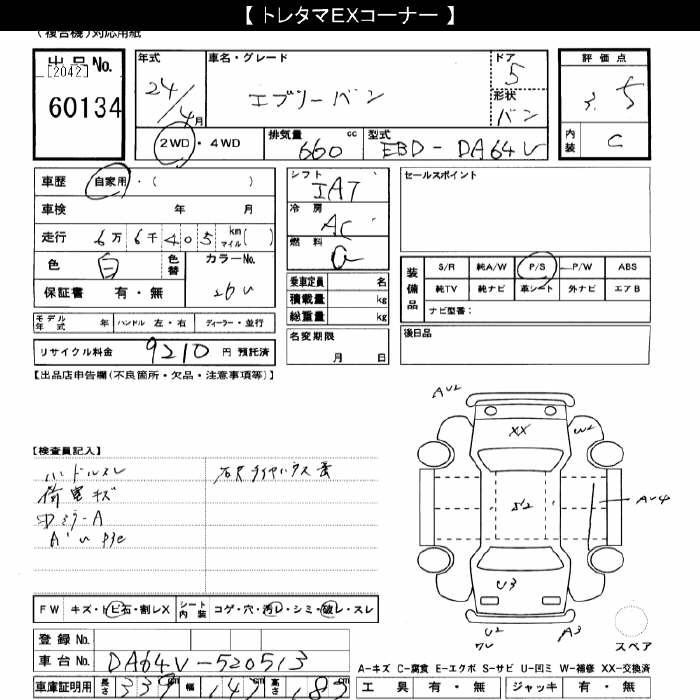 【 トレタマEXコーナー 】
(複合機)対応用紙
出品No.
[2042]
60134
年式
24/4月
車名・グレード
エブリーバン
ドア
5
形状
バン
評価点
3.5
内装
C
2WD・4WD
排気量
660 cc
型式
EBD-DA64V
車歴 自家用・( )
車検 年 月
走行 6万 6千 405 km マイル( )
色 白 色替
カラーNo.
26U
保証書 有・無
シフト
IAT
冷房
AC
燃料
G
乗車定員 名
積載量 kg
総重量 kg
セールスポイント
装備品
S/R 純A/W P/S P/W ABS
純TV 純ナビ 革シート 外ナビ エアB
ナビ型番:
モデル年式 年 ハンドル 左・右 ディーラー・並行
名変期限
月 日
後日品
リサイクル料金 9210 円 預託済
【出品店申告欄(不良箇所・欠品・注意事項等)】
【検査員記入】
ハンドルスレ
荷室キズ
ミラーA
AV2
XX
W2
S/2
AU4
U3
U2
A3
FW キズ・トビ石・割レX シート内装 コゲ・穴・汚レ・シミ・破レ・スレ
登録No.
車台No. DA64V-520513
車庫証明用 長さ 339cm 幅 147cm 高さ 183cm
スペア
A-キズ C-腐食 E-エクボ S-サビ U-凹ミ W-補修 XX-交換済
工具 有・無 ジャッキ 有・無